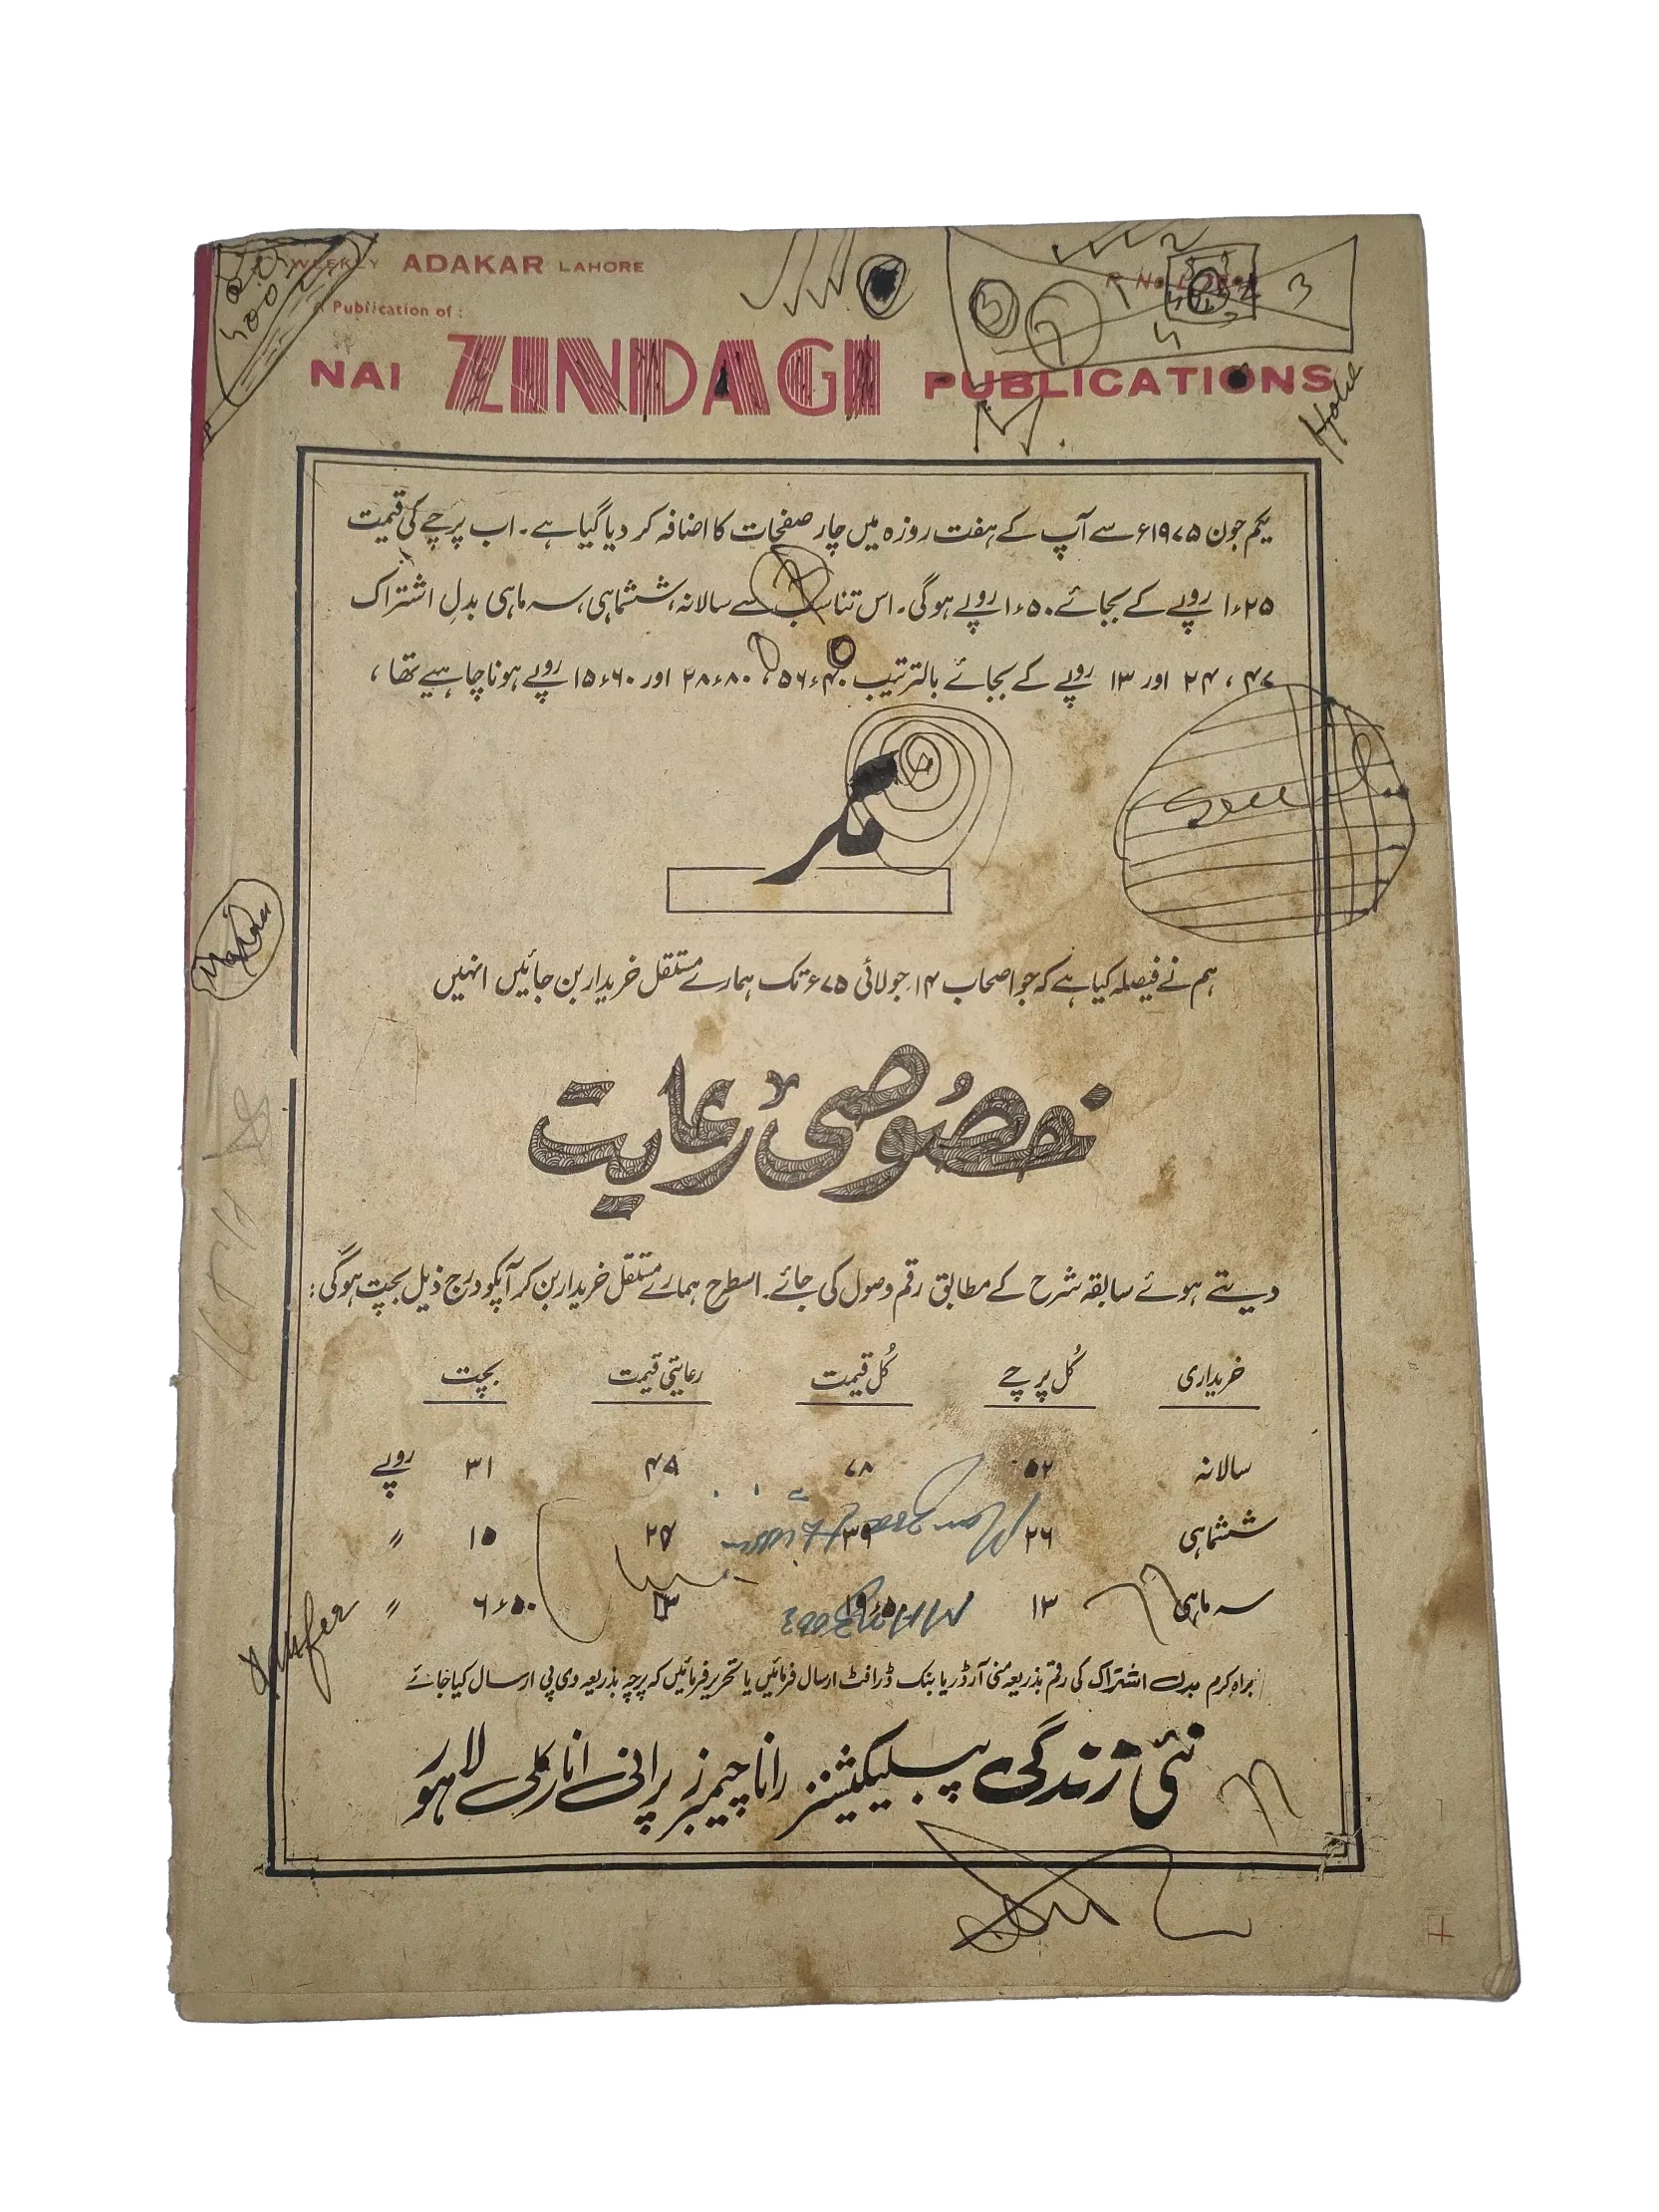 WEEKLY ADAKAR LAHORE
A Publication of :
NAI ZINDAGI PUBLICATIONS
یکم جون ۱۹۷۵ء سے آپ کے ہفت روزہ میں چار صفحات کا اضافہ کر دیا گیا ہے۔ اب پرچے کی قیمت
۱ء۲۵ روپے کے بجائے ۱ء۵۰ روپے ہوگی۔ اس تناسب سے سالانہ، ششماہی، سہ ماہی بدلِ اشتراک
۴۷، ۲۴ اور ۱۳ روپے کے بجائے بالترتیب ۵۶ء۴۰، ۲۸ء۸۰ اور ۱۵ء۶۰ روپے ہونا چاہیے تھا،
مگر
ہم نے فیصلہ کیا ہے کہ جو اصحاب ۱۴ جولائی ۷۵ء تک ہمارے مستقل خریدار بن جائیں انہیں
خصُوصی رعایت
دیتے ہوئے سابقہ شرح کے مطابق رقم وصول کی جائے۔ اسطرح ہمارے مستقل خریدار بن کر آپکو درج ذیل بچت ہوگی:
خریداری کُل پرچے کُل قیمت رعایتی قیمت بچت
سالانہ ۵۲ ۷۸ ۴۷ ۳۱ روپے
ششماہی ۲۶ ۳۹ ۲۴ ۱۵ "
سہ ماہی ۱۳ ۱۹ء۵۰ ۱۳ ۶ء۵۰ "
براہِ کرم بدل اشتراک کی رقم بذریعہ منی آرڈر یا بنک ڈرافٹ ارسال فرمائیں یا تحریر فرمائیں کہ پرچہ بذریعہ وی پی ارسال کیا جائے
نئی زندگی پبلیکیشنز رانا چیمبرز پرانی انارکلی لاہور